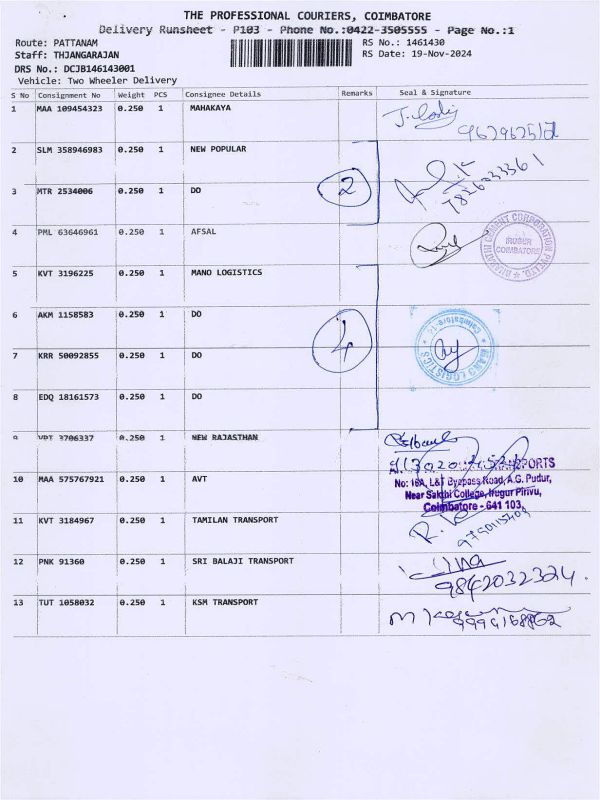 THE PROFESSIONAL COURIERS, COIMBATORE
Delivery Runsheet - P103 - Phone No.:0422-3505555 - Page No.:1
Route: PATTANAM RS No.: 1461430
Staff: THJANGARAJAN RS Date: 19-Nov-2024
DRS No.: DCJB146143001
Vehicle: Two Wheeler Delivery
S No Consignment No Weight PCS Consignee Details Remarks Seal & Signature
1 MAA 109454323 0.250 1 MAHAKAYA
2 SLM 358946983 0.250 1 NEW POPULAR
7826033361
3 MTR 2534006 0.250 1 DO 2
4 PML 63646961 0.250 1 AFSAL
IRUGUR COIMBATORE
5 KVT 3196225 0.250 1 MANO LOGISTICS
6 AKM 1158583 0.250 1 DO
4
MANO LOGISTICS Coimbatore-14
7 KRR 50092855 0.250 1 DO
8 EDQ 18161573 0.250 1 DO
9 VPT 3706337 0.250 1 NEW RAJASTHAN
10 MAA 575767921 0.250 1 AVT
No: 16A, L&T Byepass Road, A.G. Pudur,
Near Sakthi College, Irugur Pirivu,
Coimbatore - 641 103.
11 KVT 3184967 0.250 1 TAMILAN TRANSPORT
12 PNK 91360 0.250 1 SRI BALAJI TRANSPORT
9842032324.
13 TUT 1058032 0.250 1 KSM TRANSPORT